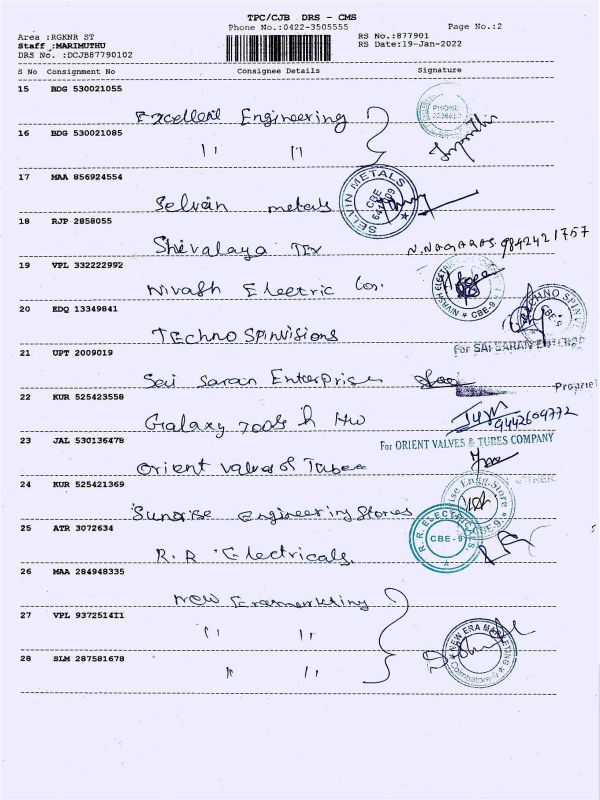 TPC/CJB DRS - CMS
Phone No.:0422-3505555
Page No.:2
Area :RGKNR ST
Staff :MARIMUTHU
DRS No. :DCJB87790102
RS No.:877901
RS Date:19-Jan-2022
S No Consignment No Consignee Details Signature
15 BDG 530021055
Excellent Engineering
PHONE
16 BDG 530021085
〃 〃
17 MAA 856924554
Selvan metals
SELVIN METALS
CBE
641009
18 RJP 2858055
Shivalaya Tex
N. NAGARAJ. 9842421757
19 VPL 332222992
Nivash Electric Con.
NIVASH ELECTRIC
CBE-9
20 EDQ 13349841
Techno Spinvisions
TECHNO SPINV
CBE-9
For SAI SARAN ENTERP
21 UPT 2009019
Sai Saran Enterprises
Propriet
22 KUR 525423558
Galaxy Tools h HW
9442609772
23 JAL 530136478
For ORIENT VALVES & TUBES COMPANY
Orient valves of Tubee
24 KUR 525421369
TNER
Sunrise Engineering Stores
rise Engg. Store
CBE-9
25 ATR 3072634
R.R. Electricals.
R. R. ELECTRICALS
CBE-9
26 MAA 284948335
New Eramarkting
27 VPL 937251411
〃 〃
NEW ERA MARKETING
Coimbatore-9
28 SLM 287581678
〃 〃